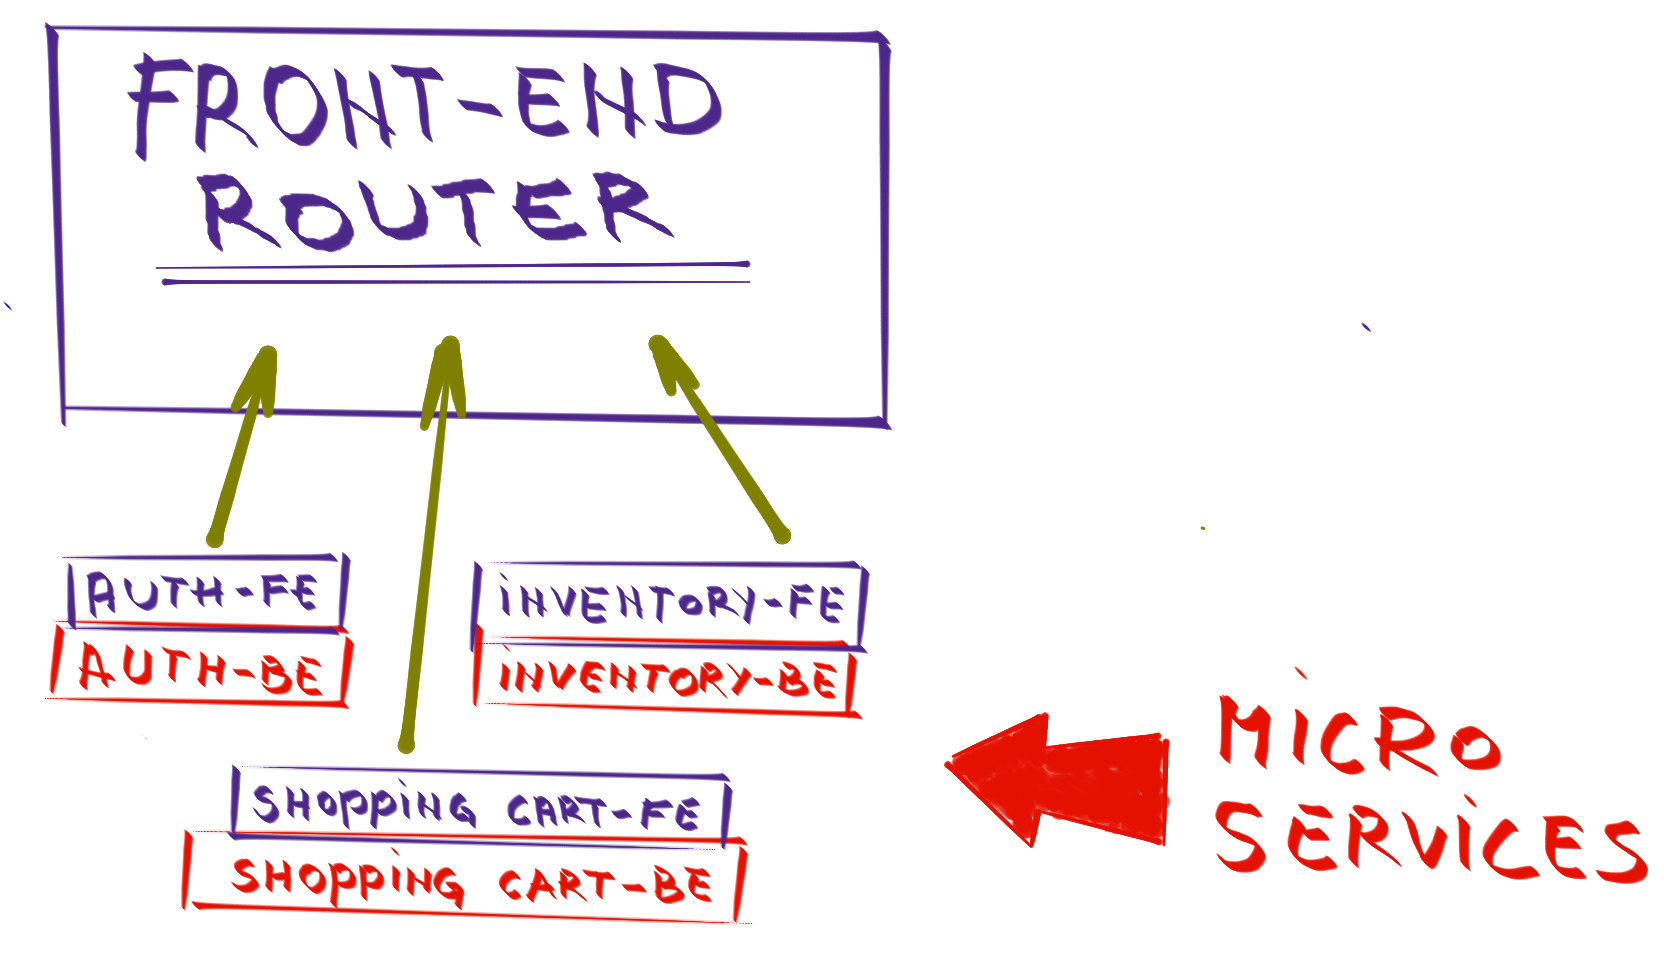 FRONT-END
ROUTER
AUTH-FE
AUTH-BE
iNVENTORY-FE
iNVENTORY-BE
SHOPPiNG CART-FE
SHOPPiNG CART-BE
MiCRO
SERViCES